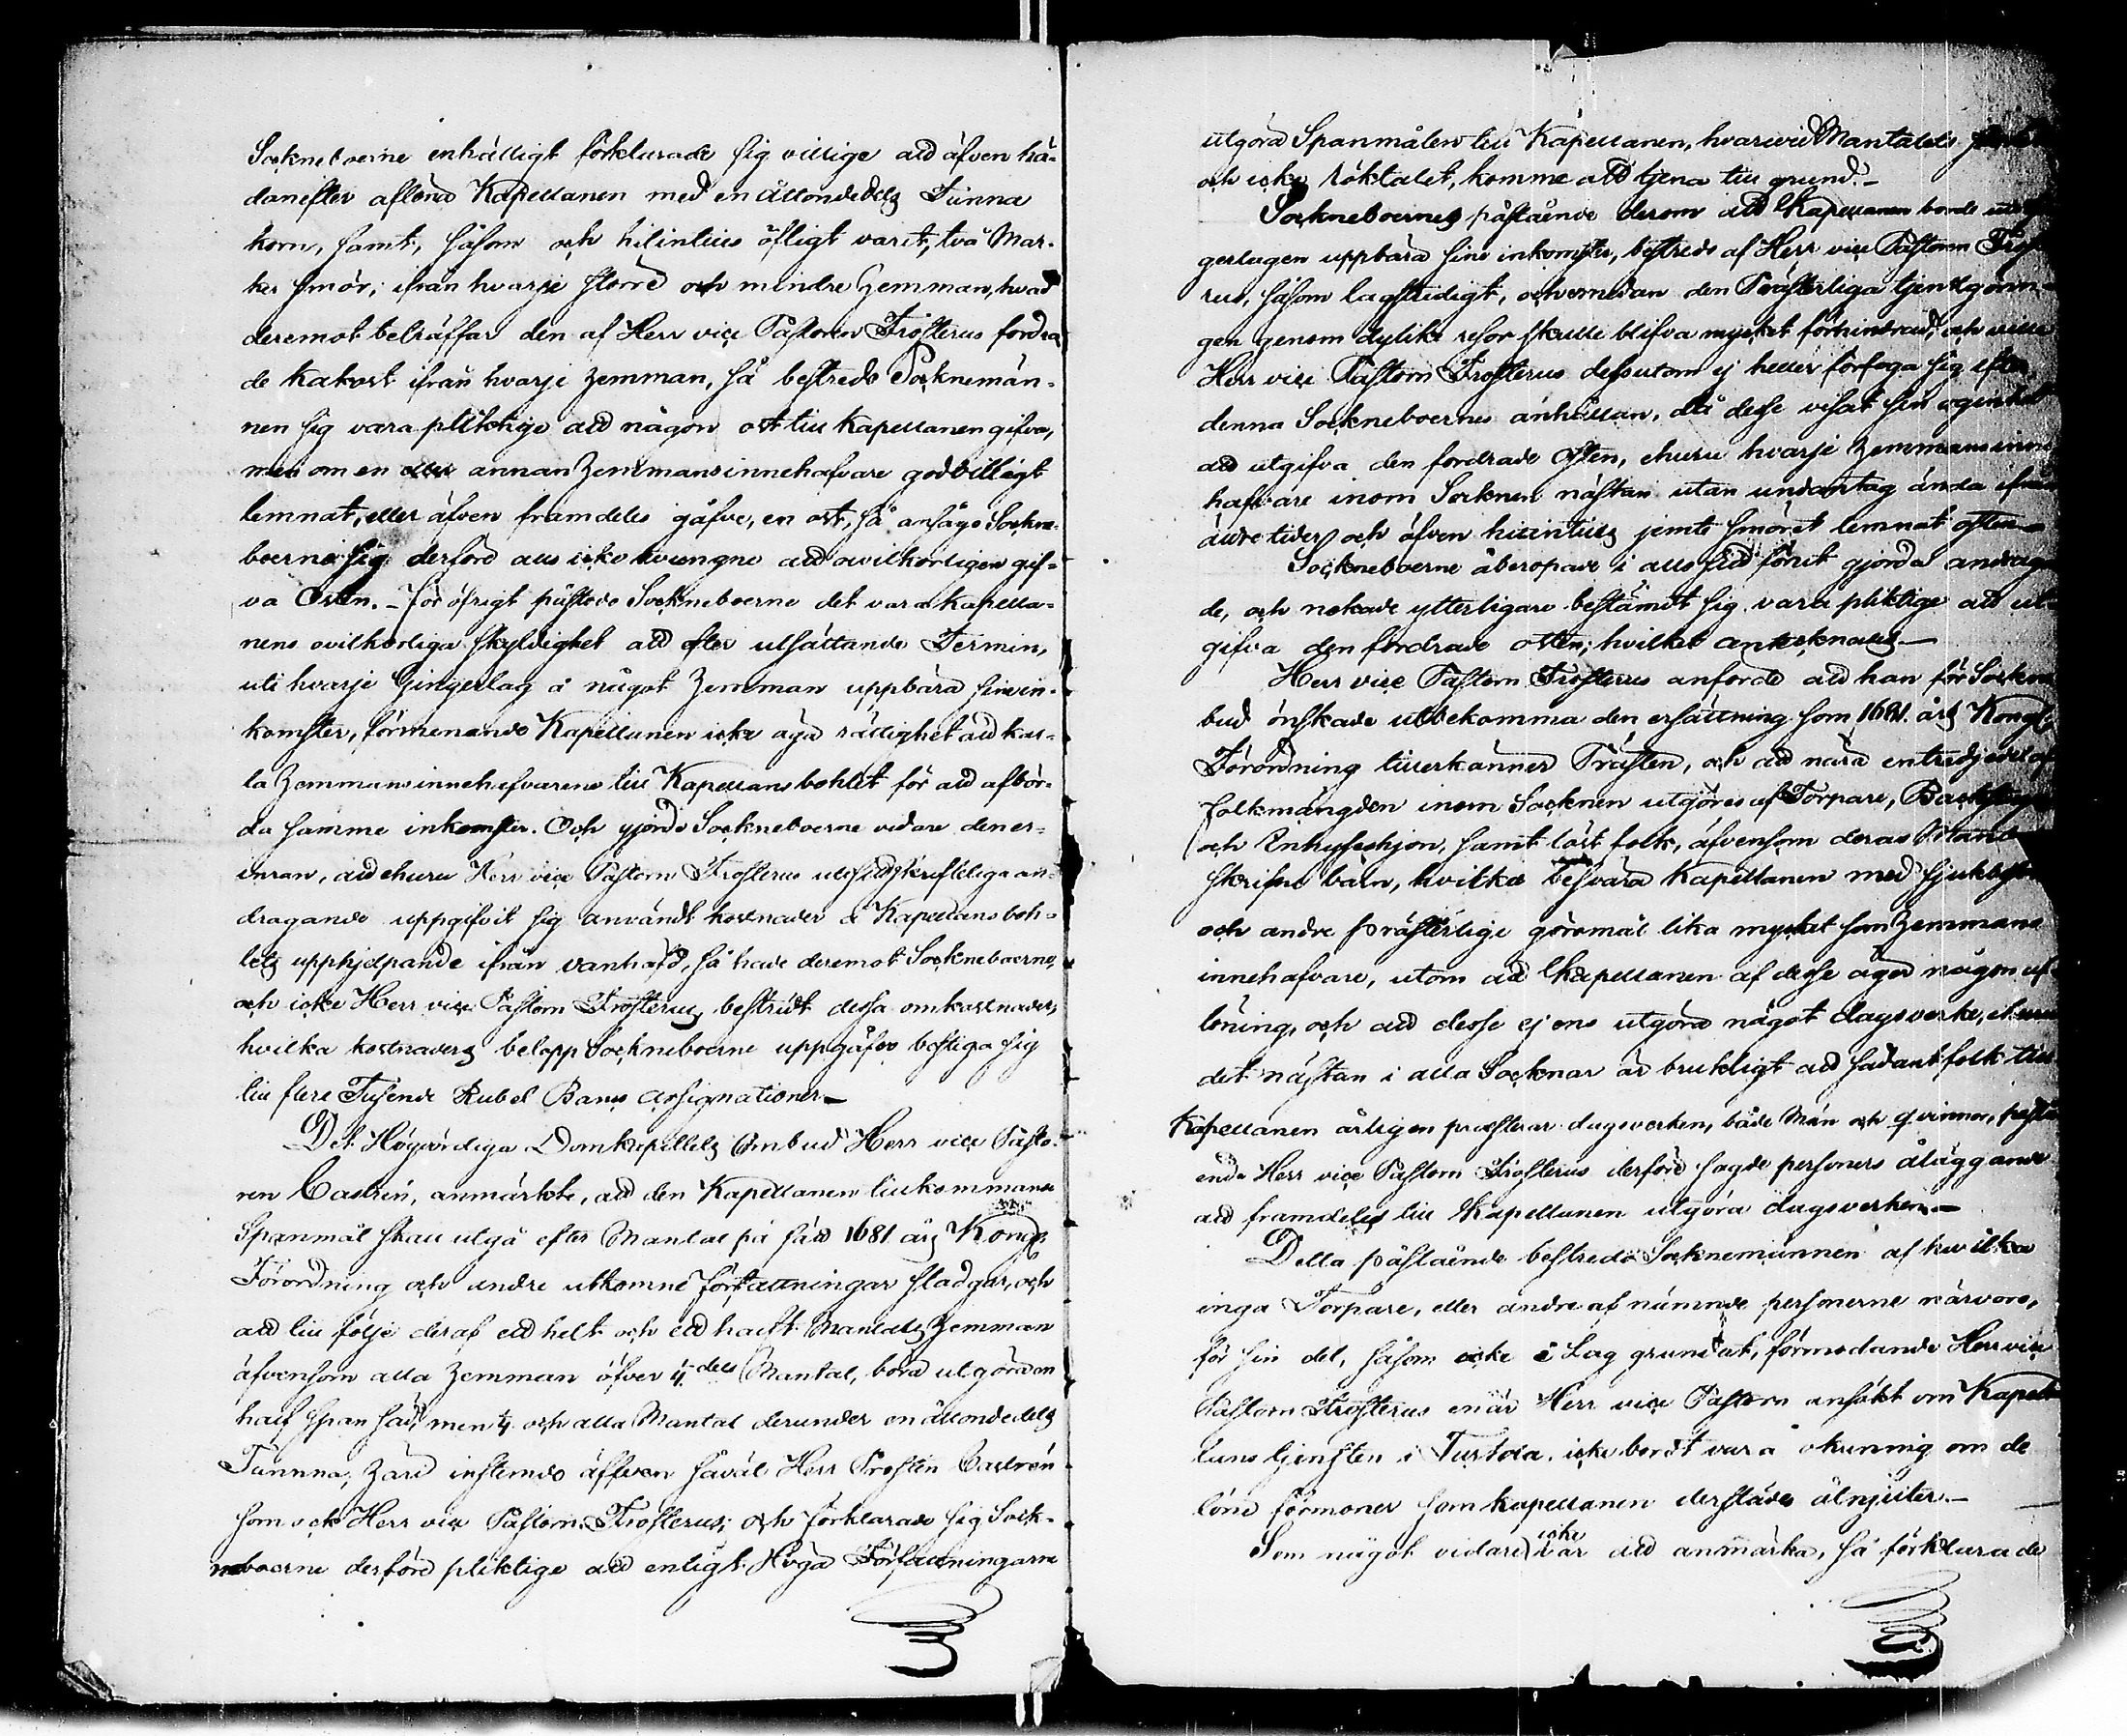 Sockneboerne enhälligt förklarade sig villige att äfven hä-
danefter aflöna Kapellanen med en åttondedels Tunna
korn, samt, såsom och hitintills öfligt varit, två Mar-
ker smör, ifrån hvarje större och mindre Hemman, hvad
deremot beträffar den af Herr vice Pastoren Frosterus fordra-
de kakost ifrån hvarje hemman, så bestredo Socknemän-
nen sig vara pliktige att någon ost till Kapellanen gifva,
men om en eller annan Hemmansinnehafvare godvilligt
lemnat, eller äfven framdeles gåfve, en ost, så ansågo Sockne-
boerne sig derföre alls icke tvungne att ovilkorligen gif-
va Osten. - För öfrigt påstodo Sockneboerne det vara Kapella-
nens ovilkorliga skyldighet att efter utsättande Termin,
uti hvarje Gingerlag å något Hemman uppbära sine in-
komster, förmenande Kapellanen icke äga rättighet att kal-
la Hemmansinnehafvarena till Kapellansbohlet för att afbör-
da samme inkomster. Och gjorde Sockneboerne vidare den er-
inran, att ehuru Herr vice Pastorn Frosterus uti sitt skriftliga an-
dragande uppgifvit sig användt kostnader å Kapellansboh-
lets upphjelpande ifrån vanhäfd, så hade deremot Sockneboerne,
och icke Herr vice Pastorn Frosterus, bestridt dessa omkostnader,
hvilka kostnaders belopp Sockneboerne uppgåfvo bestiga sig
till flere Tusende Rubel Banco Assignationer. -
Det Högvördiga Domkapitlets Ombud Herr vice Pasto-
ren Castrén, anmärkte, att den Kapellanen tillkommande
Spanmål skall utgå efter Mantal på sätt 1681 års Kongl.
Förordning och andre utkomne författningar stadgar, och
att till följe deraf ett helt och ett halft Mantals Hemman
äfvensom alla Hemman öfver 4.dels Mantal, böra utgöra en
half span säd, men ¼ och alla Mantal derunder en åttondedels
Tunnna, häri instemde äffven såväl Herr Prosten Castrén
som ock Herr vice Pastorn Frosterus; och förklarade sig Sock-
neboerne derföre pliktige att enligt Höga Författningarne
utgöra Spanmålen till Kapellanen, hvarvid Mantalets
och icke röktalet, komme att tjena till grund. -
Sockneboernes påstående derom att Kapellanen borde uti
gerlagen uppbära sine inkomster, bestreds af Herr vice Pastorn Fros-
rus, såsom lagstridigt, och emedan den Prästerliga tjenstgörin-
gen genom dylika resor skulle blifva mycket förhindrad, och ville
Herr vice Pastorn Frosterus dessutom ej heller förfoga sig efter
denna Sockneboernes anhållan, då desse visat sin ogenhet
att utgifva den fordrade Osten, ehuru hvarje Hemmans inne-
hafvare inom Socknen nästan utan undantag ända ifrån
äldre tider och äfven hitintills jemte smöret lemnat osten.
Sockneboerne åberopade i allo sitt förut gjorda andragan-
de, och nekade ytterligare bestämdt sig vara pliktige att ut-
gifva den fordrade osten; hvilket antecknades. -
Herr vice Pastorn Frosterus anförde att han för Sockne-
bud önskade utbekomma den ersättning som 1681. års Kongl.
Förordning tillerkänner Prästen, och att nära entredjedel af
folkmängden inom Socknen utgöres af Torpare, Backstugu
och Inhyseshjon, samt löst folk, äfvensom deras Mantals-
skrifne barn, hvilka besvära Kapellanen med sjukbesök
och andre prästerlige göromål lika mycket som Hemmans
innehafvare, utom att Kapellanen af desse äger någon af-
löning, och att desse ej ens utgöra något dagsverke, ehuru
det nästan i alla Socknar är brukligt att sådant folk till
Kapellanen årligen prästerar dagsverken, både Män och qvinnor, påstå-
ende Herr vice Pastorn Frosterus derföre sagde personers åläggande
att framdeles till Kapellanen utgöra dagsverken. -
Detta påstående bestredo Socknemännen af hvilka
inga Torpare, eller andre af nämnde personerne närvoro,
för sin del, såsom icke i Lag grundat, förmodande Herr vice
Pastorn Frosterus enär Herr vice Pastorn ansökt om Kapel-
lans tjensten i Turtola icke bordt vara okunnig om de
löne förmoner som kapellanen derstädes åtnjuter. -
Som något vidare icke var att anmärka, så förklarade